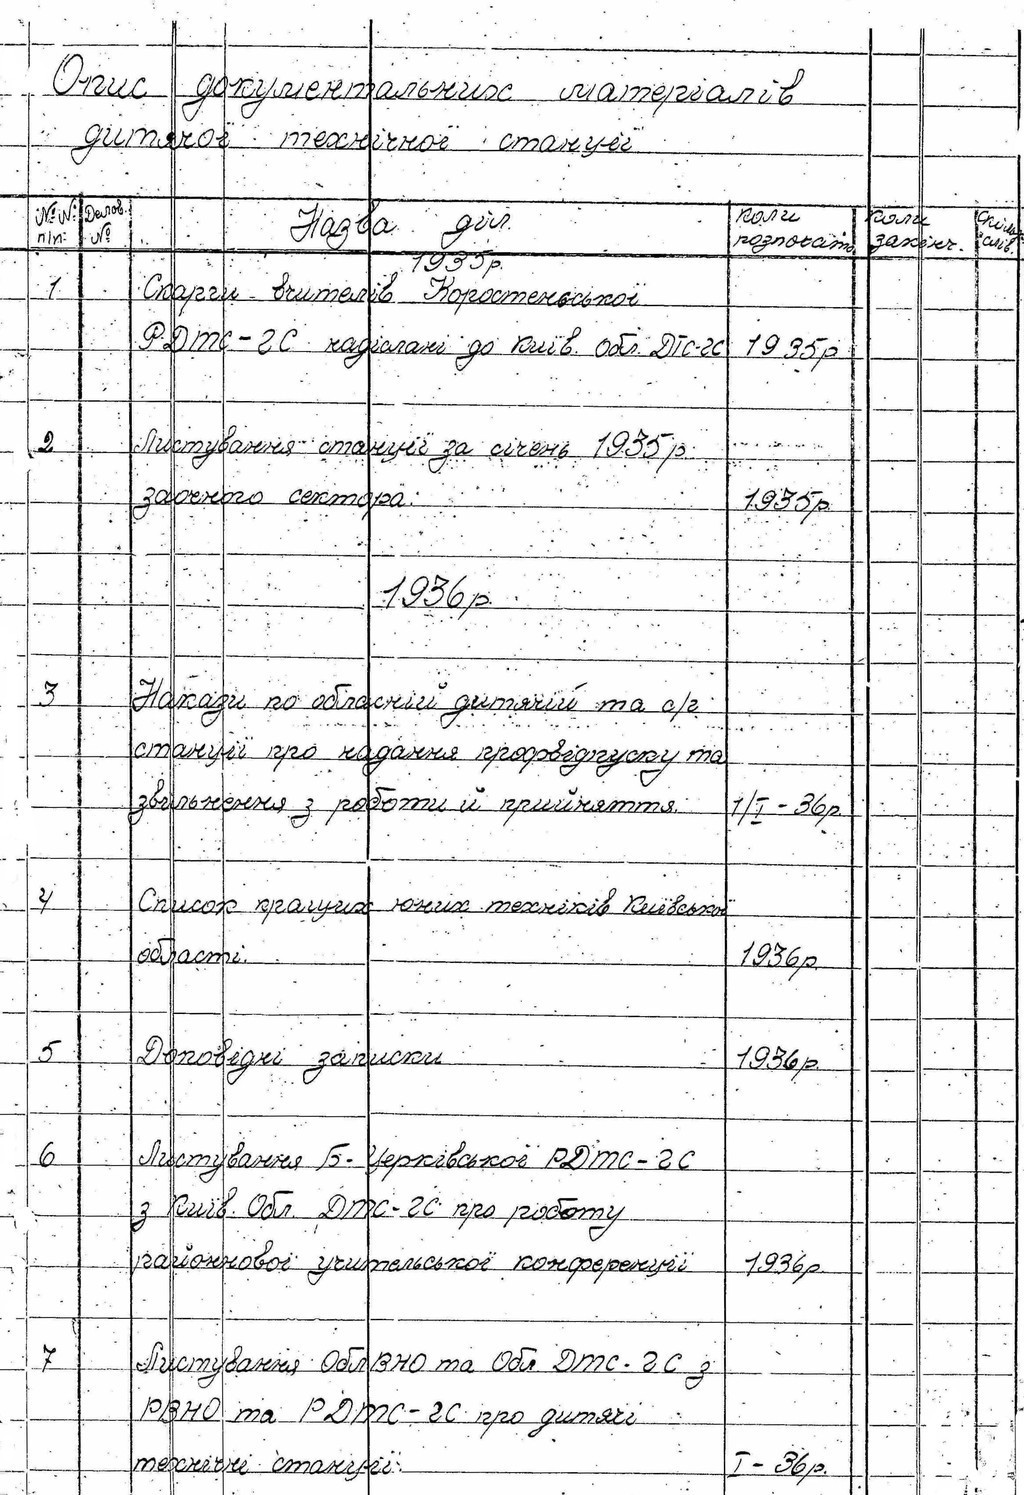 Опис документальних матеріалів
дитячої технічної станції
№ №
п/п
Делов.
№
Назва діл.
коли
розпочато
коли
закінч.
1935р.
1 Скарги вчителів Коростенської
РДТС-ГС надіслані до Київ. обл. ДТС-ГС 1935р
2 Листування станції за січень 1935р.
заочного сектора. 1935р.
1936р.
3 Накази по обласній дитячій та с/г
станції про надання профвідпуску та
звільнення з роботи й прийняття. 1/I-36р.
4 Список кращих юних техніків Київської
області. 1936р.
5 Доповідні записки 1936р.
6 Листування Б-Церківської РДТС-ГС
з Київ. Обл. ДТС-ГС про роботу
районнової учительської конференції 1936р.
7 Листування ОблВНО та Обл ДТС-ГС з
РВНО та РДТС-ГС про дитячі
технічні станції. I-36р.